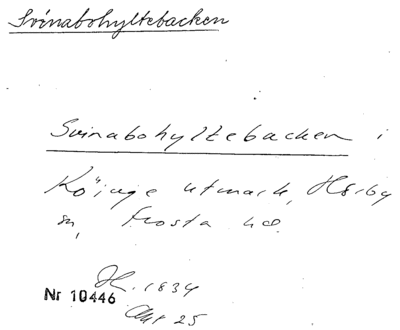 Svinabohyltebacken
Svinabohyltebacken i
Köinge utmark, Hörby
sn, Frosta hd
H. 1834
Nr 10446
Akt 25